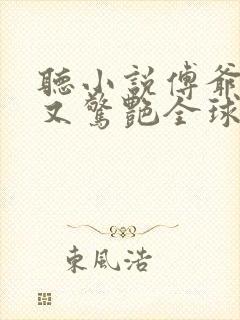 聽小說傅爺
又驚艷全球
東風浩